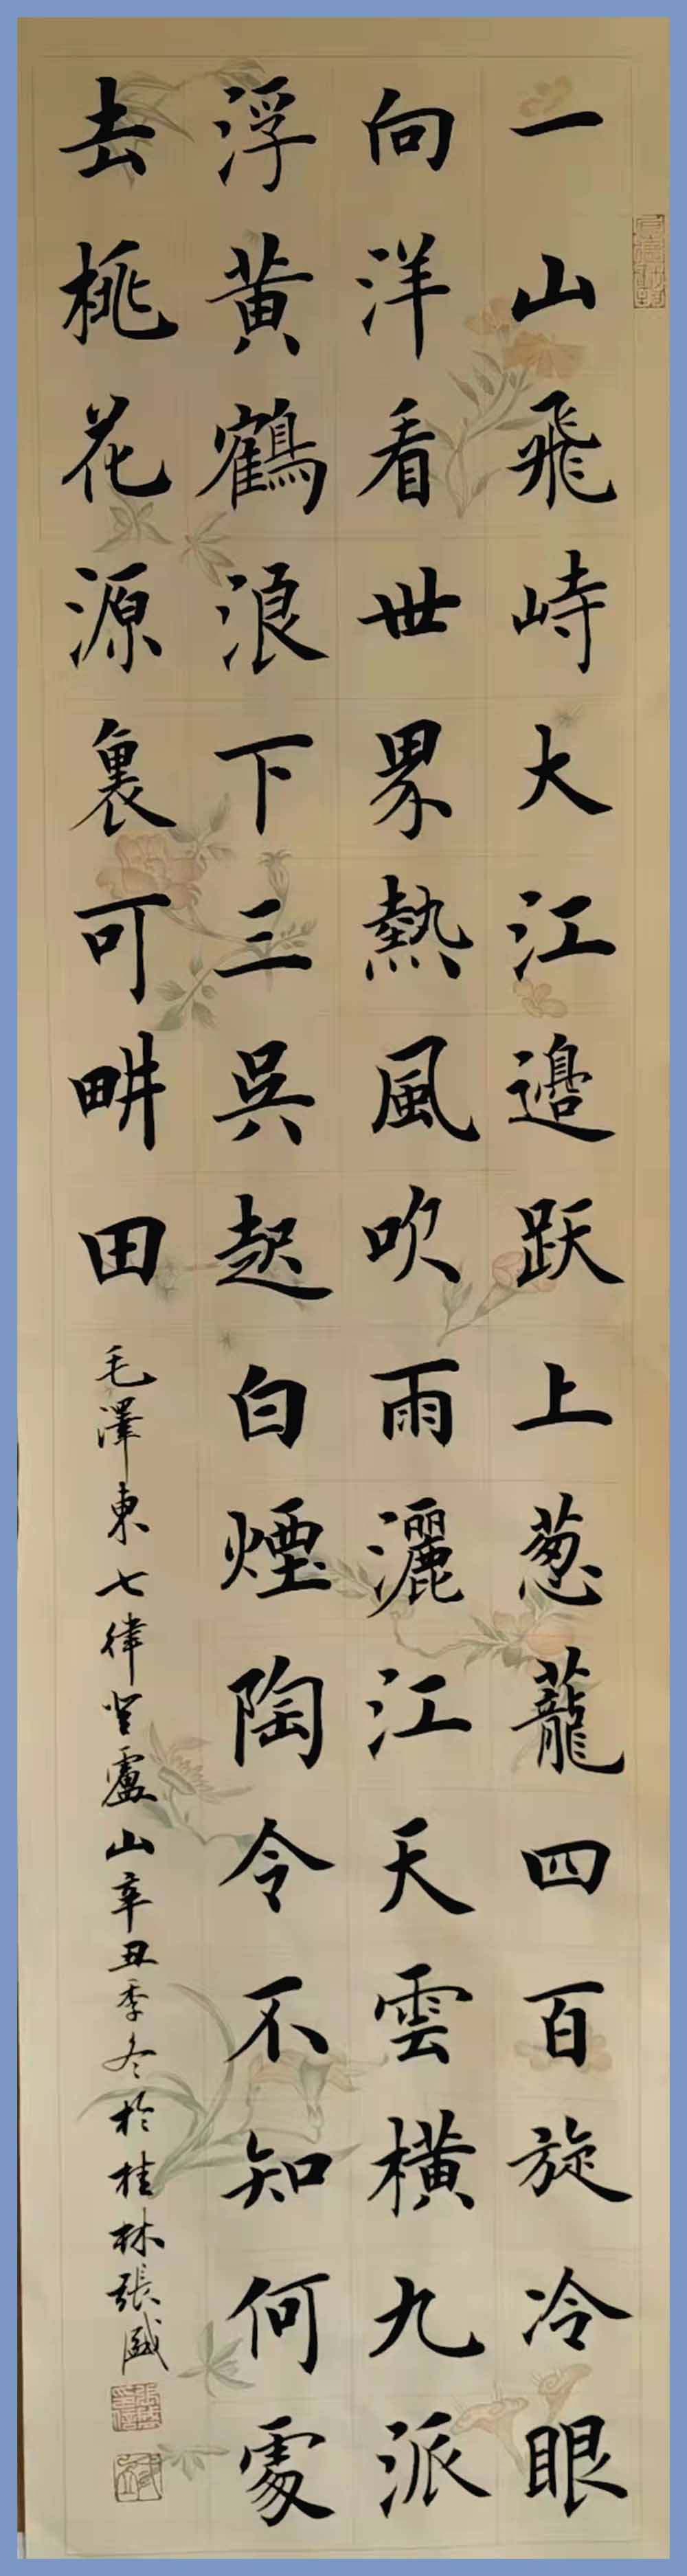 一山飛峙大江邊跃上葱蘢四百旋冷眼
向洋看世界熱風吹雨灑江天雲橫九派
浮黃鶴浪下三吳起白煙陶令不知何處
去桃花源裏可畊田
毛澤東七律登廬山辛丑季冬於桂林張盛